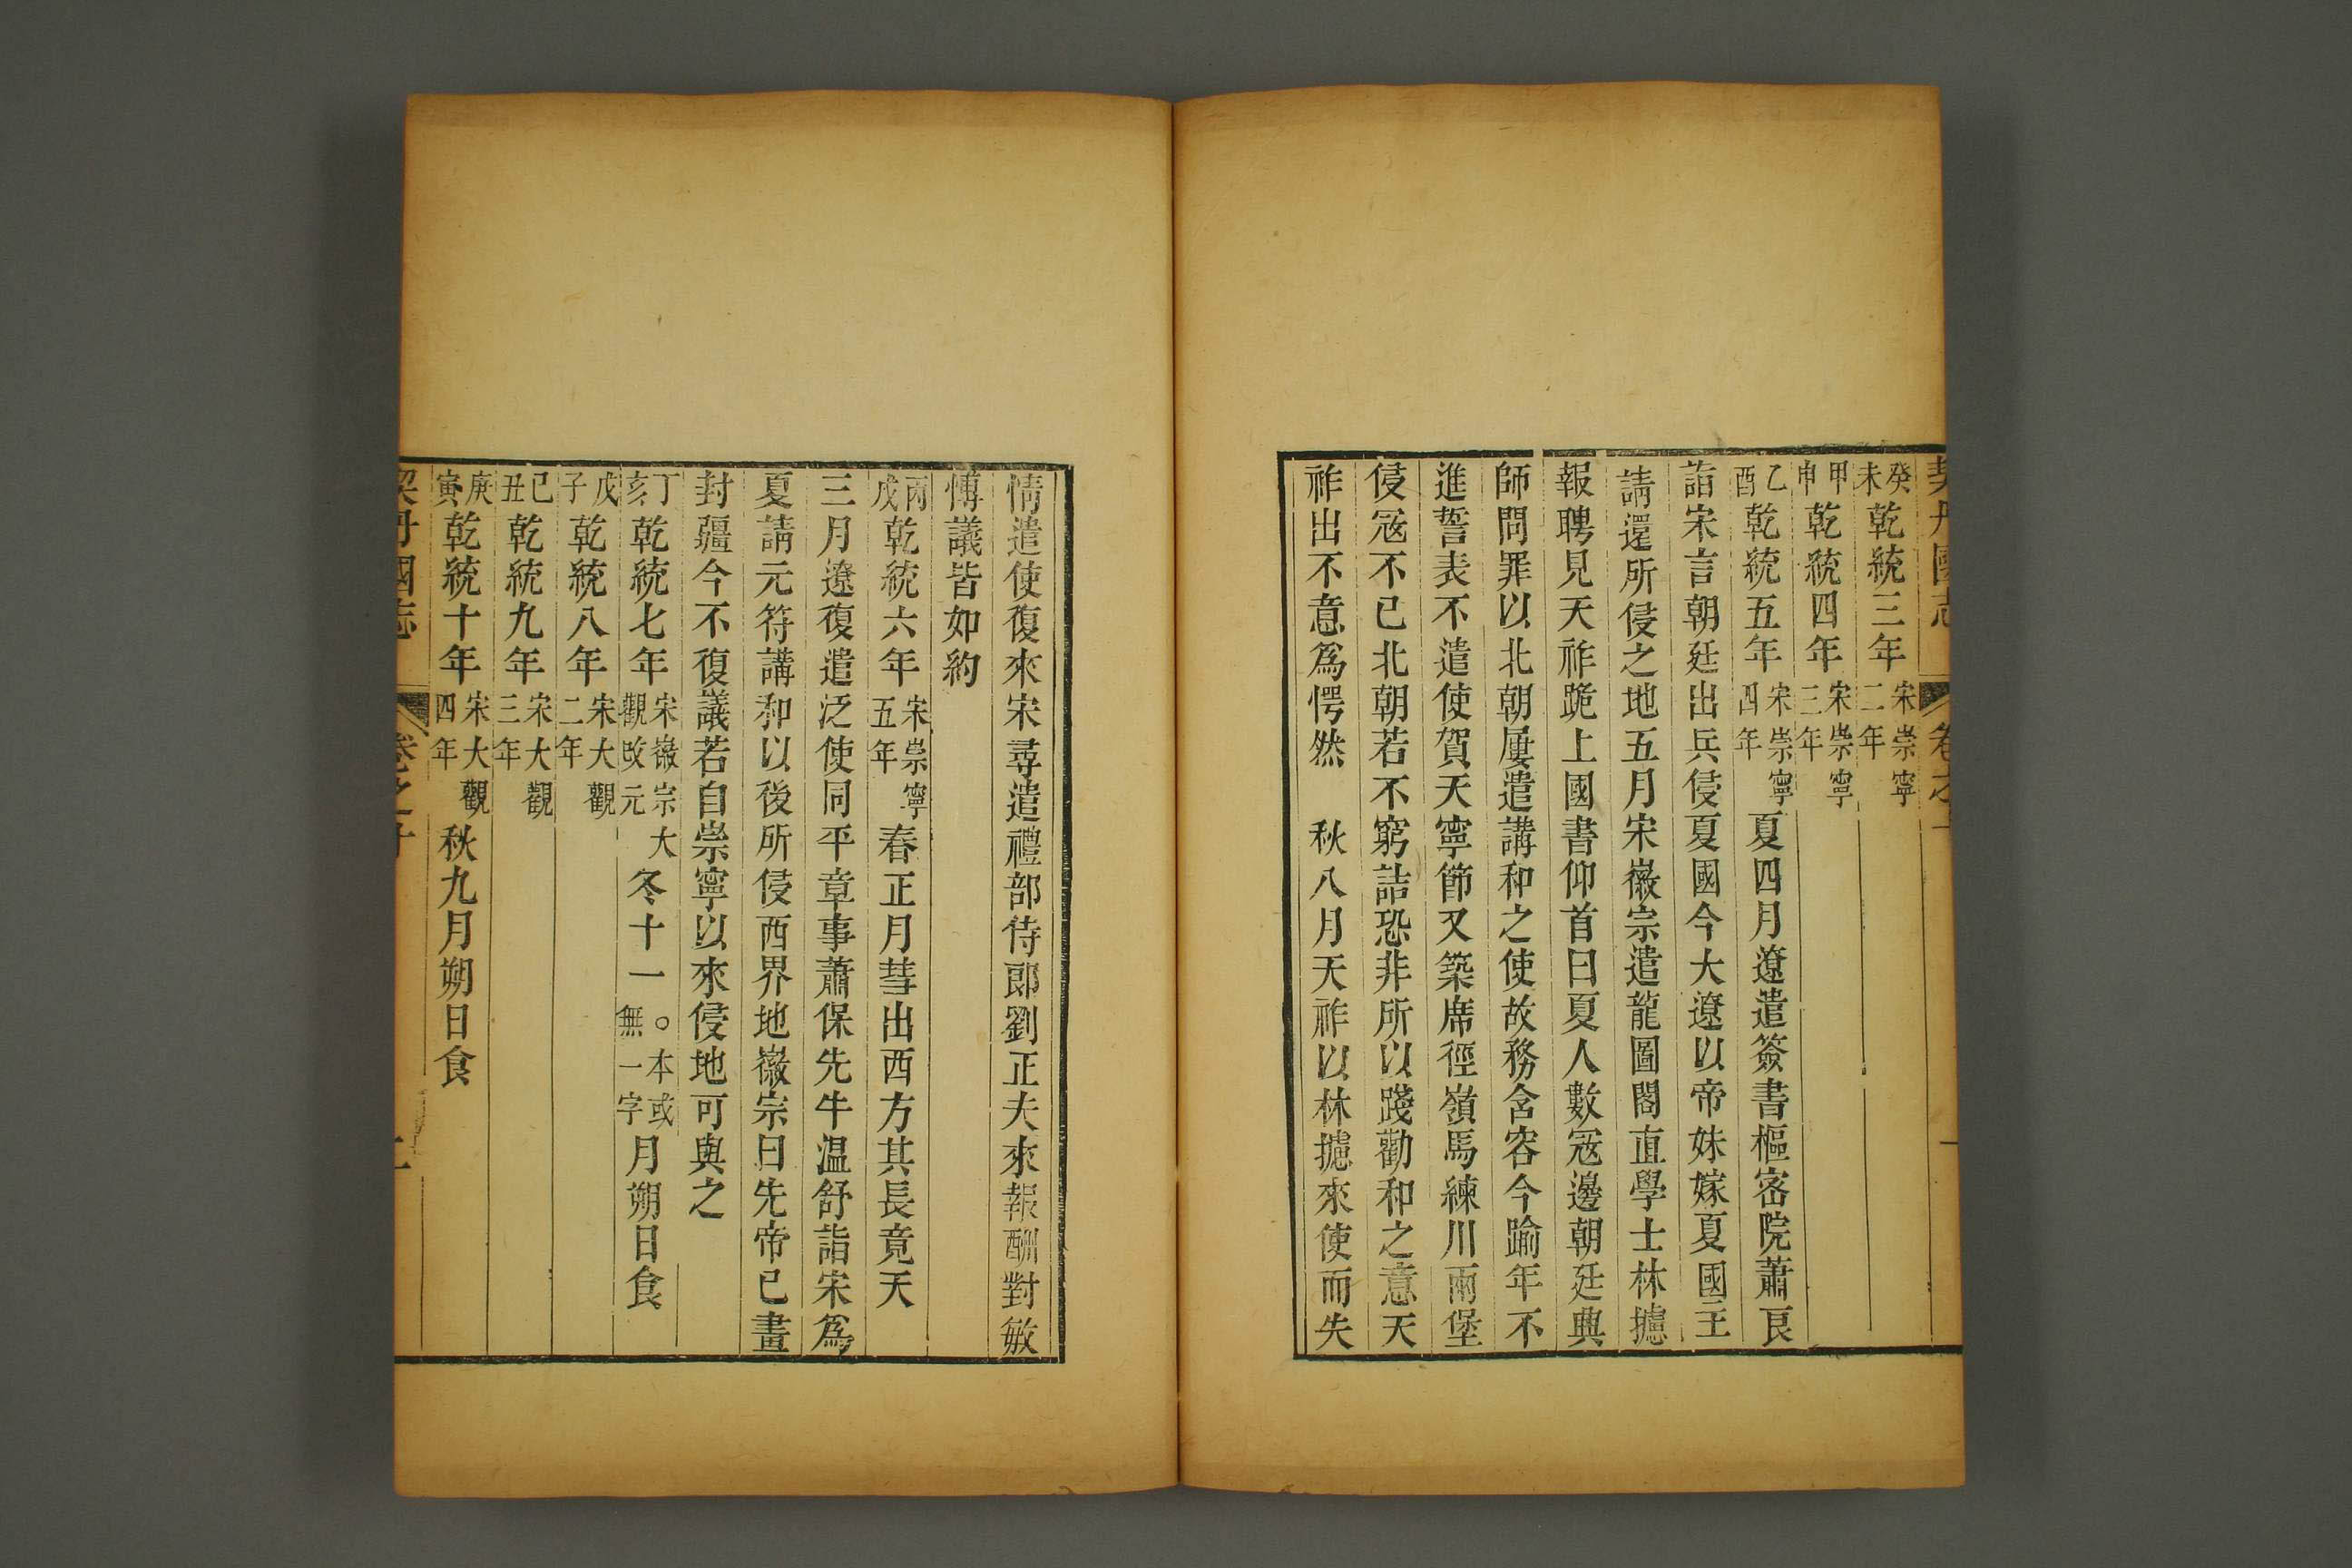 契丹國志 卷之十
癸未乾統三年宋崇寧二年
甲申乾統四年宋崇寧三年
乙酉乾統五年宋崇寧四年夏四月遼遣簽書樞密院蕭良
詣宋言朝廷出兵侵夏國今大遼以帝妹嫁夏國主
請還所侵之地五月宋徽宗遣龍圖閣直學士林攄
報聘見天祚跪上國書仰首曰夏人數冦邊朝廷興
師問罪以北朝屢遣講和之使故務含容今踰年不
進誓表不遣使賀天寧節又築席徑嶺馬練川兩堡
侵冦不已北朝若不窮詰恐非所以踐勸和之意天
祚出不意爲愕然 秋八月天祚以林攄來使而失
情遣使復來宋尋遣禮部侍郎劉正夫來報酬對敏
博議皆如約
丙戌乾統六年宋崇寧五年春正月彗出西方其長竟天
三月遼復遣泛使同平章事蕭保先牛温舒詣宋爲
夏請元符講和以後所侵西界地徽宗曰先帝已畫
封疆今不復議若自崇寧以來侵地可與之
丁亥乾統七年宋徽宗大觀改元冬十一○本或無一字月朔日食
戊子乾統八年宋大觀二年
己丑乾統九年宋大觀三年
庚寅乾統十年宋大觀四年秋九月朔日食
契丹國志 卷之十